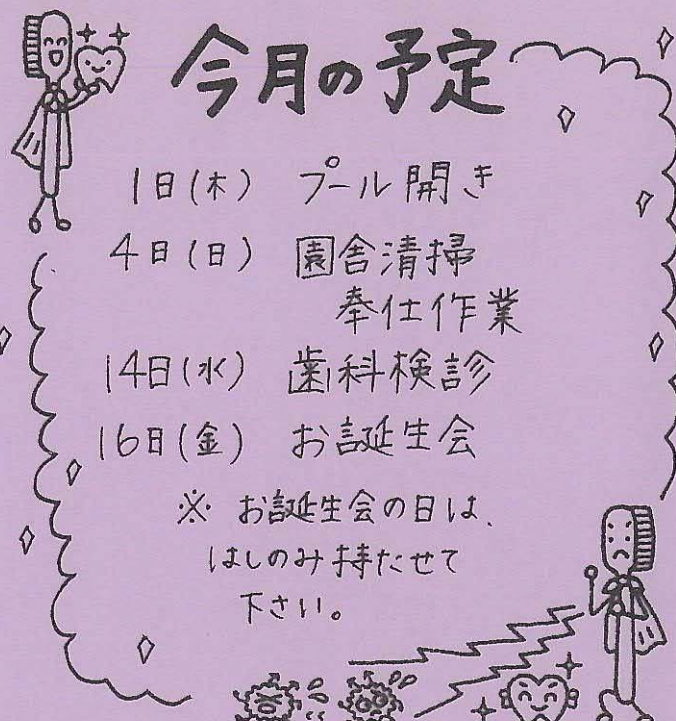 今月の予定
1日(木) プール開き
4日(日) 園舎清掃
奉仕作業
14日(水) 歯科検診
16日(金) お誕生会
※ お誕生会の日は、
はしのみ持たせて
下さい。